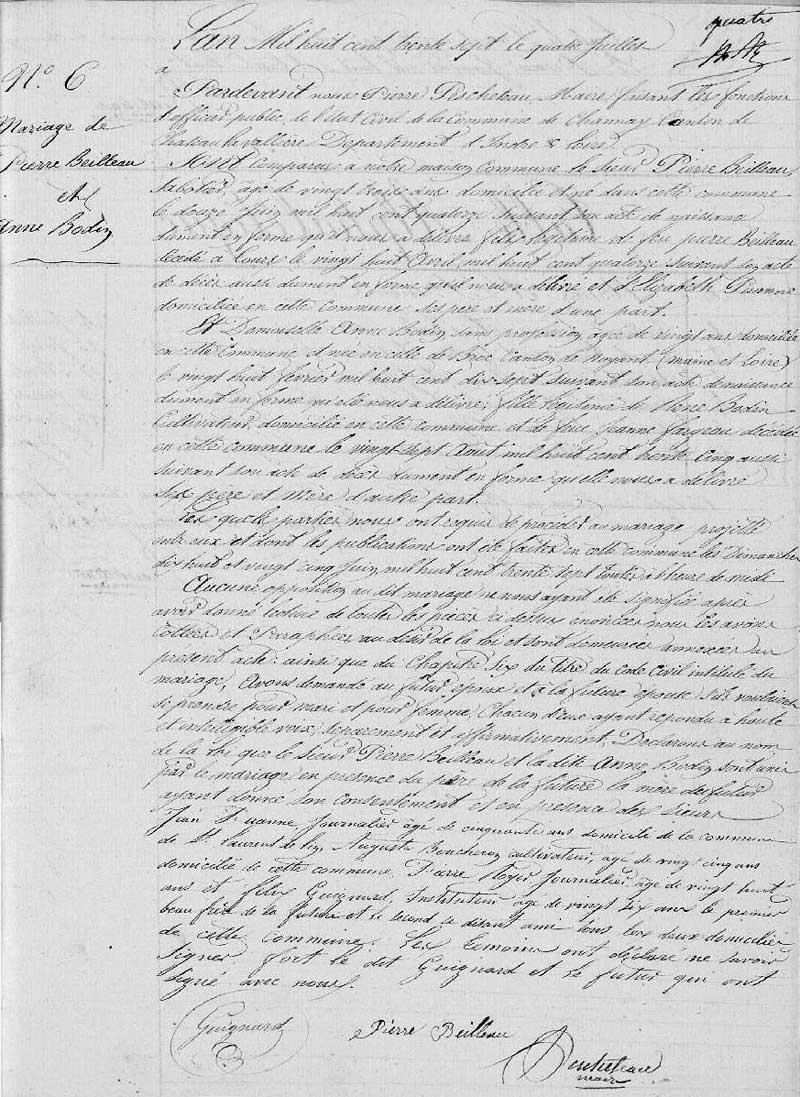 quatre
N° 6
Mariage de
Pierre Beilleau
et
Anne Bodin
L'an Mil huit cent trente sept le quatre juillet
a
Pardevant nous Pierre Pescheteau Maire faisant les fonctions
d'officier public de l'etat Civil de la Commune de Channay Canton de
Chateau lavallière Departement d'Indre & Loire.
Sont Comparus a notre maison Commune le sieur Pierre Beilleau,
Sabotier, age de vingt trois ans domicilie et ne dans cette commune
le douze juin mil huit cent quatorze suivant son acte de naissance
dument en forme qu'il nous a délivré fils legitime de feu pierre Beilleau
décédé a tours le vingt huit Avril mil huit cent quatorze suivant son acte
de décès aussi dument en forme qu'il nous a délivré et d'Elizabeth
domiciliée en cette Commune ses père et mere d'une part.
Et Demoiselle Anne Bodin sans profession, agee de vingt ans domiciliée
en cette Commune et née en celle de Canton de Noyant (maine et Loire)
le vingt huit fevrier mil huit cent dix sept suivant son acte de naissance
dument en forme qu'elle nous a délivré; fille legitime de Rene Bodin
Cultivateur, domicilié en cette commune et de feue jeanne décédée
en cette commune le vingt sept Aout mil huit cent trente cinq aussi
suivant son acte de décès dument en forme qu'elle nous a délivré
Ses père et Mère d'autre part.
Lesquels parties nous ont requis de procéder au mariage projetté
entre eux et dont les publications ont été faites en cette commune les Dimanches
dix huit et vingt cinq juin mil huit cent trente sept toutes a l'heure de midi
Aucune opposition au dit mariage ne nous ayant été signifiée après
avoir donné lecture de toutes les pièces ci dessus enoncées nous les avons
Cottées et Paraphées au désir de la loi et sont demeurées annexées au
présent acte: ainsi que du Chapitre Six du titre du code Civil intitulé du
mariage, Avons demandé au futur époux et a la future epouse s'ils voulaient
se prendre pour mari et pour femme, Chacun d'eux ayant repondu a haute
et intelligible voix; separement et affirmativement, Declarons au nom
de la loi que le Sieur Pierre Beilleau et la dite Anne Bodin sont unis
par le mariage, en presence du père de la future la mère du futur
ayant donné son consentement et en presence des Sieurs
Jean Journalier âgé de cinquante ans domicilié de la commune
de St Laurent de Lin, Auguste Boucheron cultivateur, age de vingt cinq ans
domicilié de cette commune, Pierre Journalier, âgé de vingt huit
ans et felix Guignard, Instituteur age de vingt six ans le premier
beau frère de la future et le second se disant ami tous les deux domiciliés
de cette Commune. Les temoins ont déclaré ne savoir
signer fort le dit Guignard et le futur qui ont
signé avec nous.
Guignard
Pierre Beilleau
Pescheteau
maire